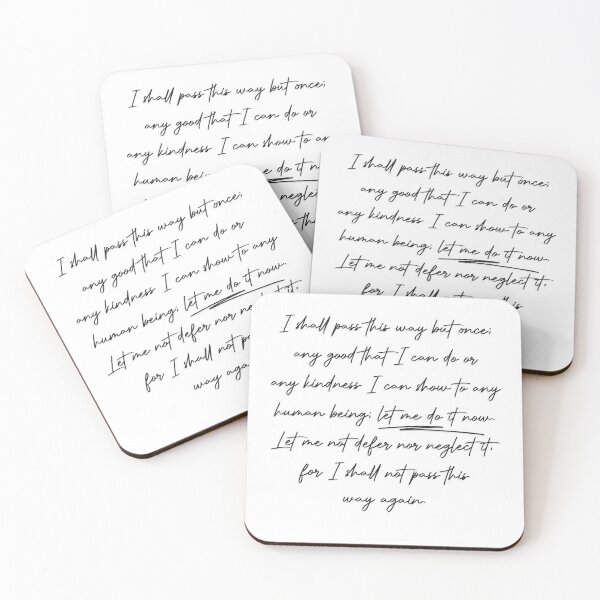 I shall pass this way but once;
any good that I can do or
any kindness I can show to
human me do it
I shall pass this way but once;
any good that I can do or
any kindness I can show to any
human being; let me do it now.
Let me not defer nor neglect it,
for I shall
I shall pass this way but once;
any good that I can do or
any kindness I can show to any
human being; let me do it now.
Let me not defer nor it,
for I shall not
way
I shall pass this way but once;
any good that I can do or
any kindness I can show to any
human being; let me do it now.
Let me not defer nor neglect it,
for I shall not pass this
way again.